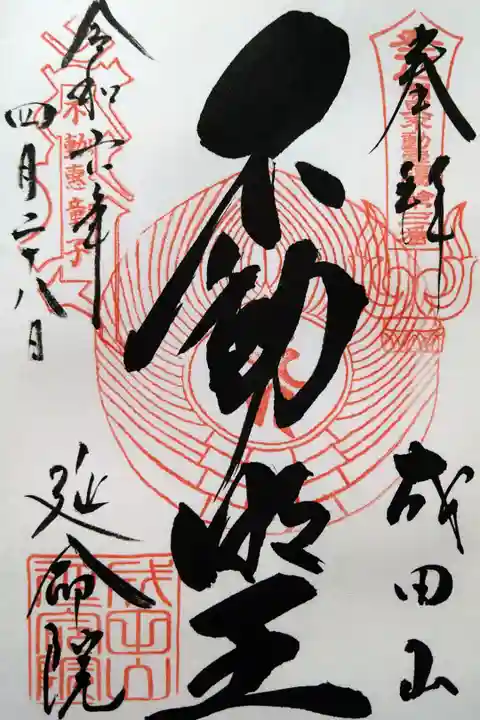 奉拝
成田山
不動明王
令和六年
四月二十八日
延命院
不動恵童子